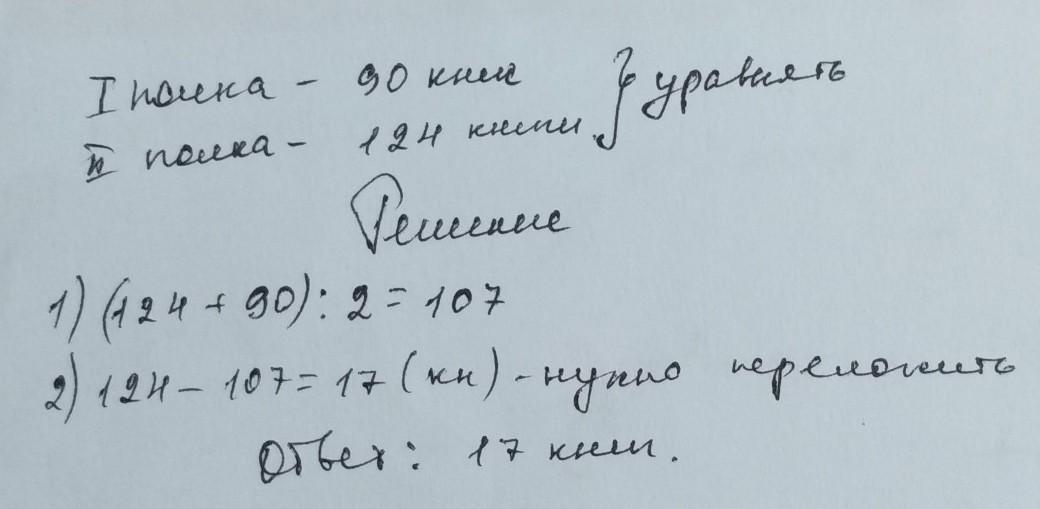 I полка - 90 книг
II полка - 124 книги } уравнять
Решение
1) (124 + 90) : 2 = 107
2) 124 - 107 = 17 (кн) - нужно переложить
Ответ: 17 книг.